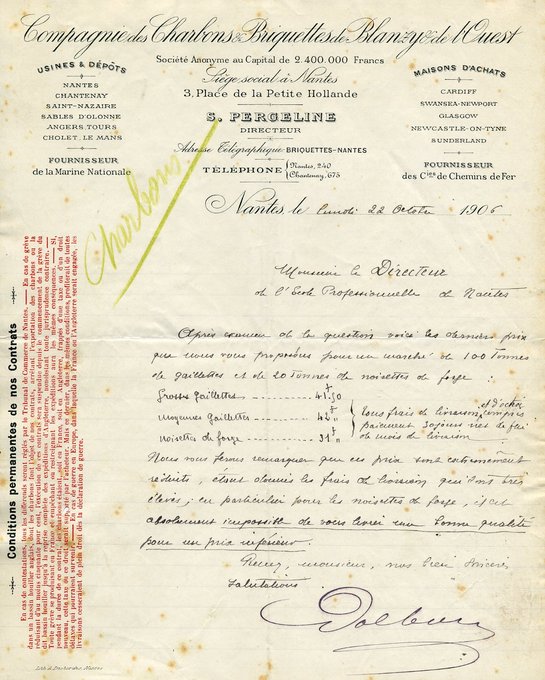 Compagnie des Charbons & Briquettes de Blanzy & de l'Ouest
Société Anonyme au Capital de 2.400.000 Francs
Siège social à Nantes
3, Place de la Petite Hollande
S. PERGELINE
DIRECTEUR
Adresse Télégraphique: BRIQUETTES-NANTES
TÉLÉPHONE { Nantes, 240
Chantenay, 675
USINES & DÉPÔTS
NANTES
CHANTENAY
SAINT-NAZAIRE
SABLES D'OLONNE
ANGERS, TOURS
CHOLET, LE MANS
FOURNISSEUR
de la Marine Nationale
MAISONS D'ACHATS
CARDIFF
SWANSEA-NEWPORT
GLASGOW
NEWCASTLE-ON-TYNE
SUNDERLAND
FOURNISSEUR
des Cies de Chemins de Fer
Charbons
Nantes, le lundi 22 Octobre 1906
Monsieur le Directeur
de l'Ecole Professionnelle de Nantes
Après examen de la question voici les derniers prix
que nous vous proposons pour un marché de 100 tonnes
de gaillettes et de 20 tonnes de noisettes de forge
Grosses Gaillettes 41,50
Moyennes Gaillettes
Noisettes de forge 31
tous frais de livraison et d'octroi compris
paiement
du mois de livraison
Nous vous ferons remarquer que ces prix sont extrêmement
réduits, étant donnés les frais de livraison qui sont très
élevés; en particulier pour les noisettes de forge il est
absolument impossible de vous livrer une bonne qualité
pour un prix inférieur.
Recevez, monsieur, nos bien sincères
salutations
Conditions permanentes de nos Contrats
En cas de contestations, tous les différends seront réglés par le Tribunal de Commerce de Nantes. — En cas de grève
dans un bassin houiller anglais, dont les charbons font l'objet de nos contrats, arrêtant l'exportation des charbons ou la
réduisant d'au moins cinquante pour cent, l'exécution de ces contrats sera suspendue depuis le commencement de la grève du
dit bassin houiller jusqu'à la reprise complète des expéditions d'Angleterre, nonobstant toute jurisprudence contraire. —
Toute grève se produisant en France et empêchant ou restreignant les expéditions aura les mêmes conséquences. — Si,
pendant la durée de ce contrat, les charbons étaient, soit en France, soit en Angleterre, frappés d'une taxe ou d'un droit
nouveau, cette taxe ou ce droit serait supporté par l'acheteur. Mais ce dernier, dans les mêmes conditions, profiterait de toutes
détaxes qui pourraient survenir. — En cas de guerre en Europe, dans laquelle la France ou l'Angleterre serait engagée, les
livraisons cesseraient de plein droit dès la déclaration de guerre.